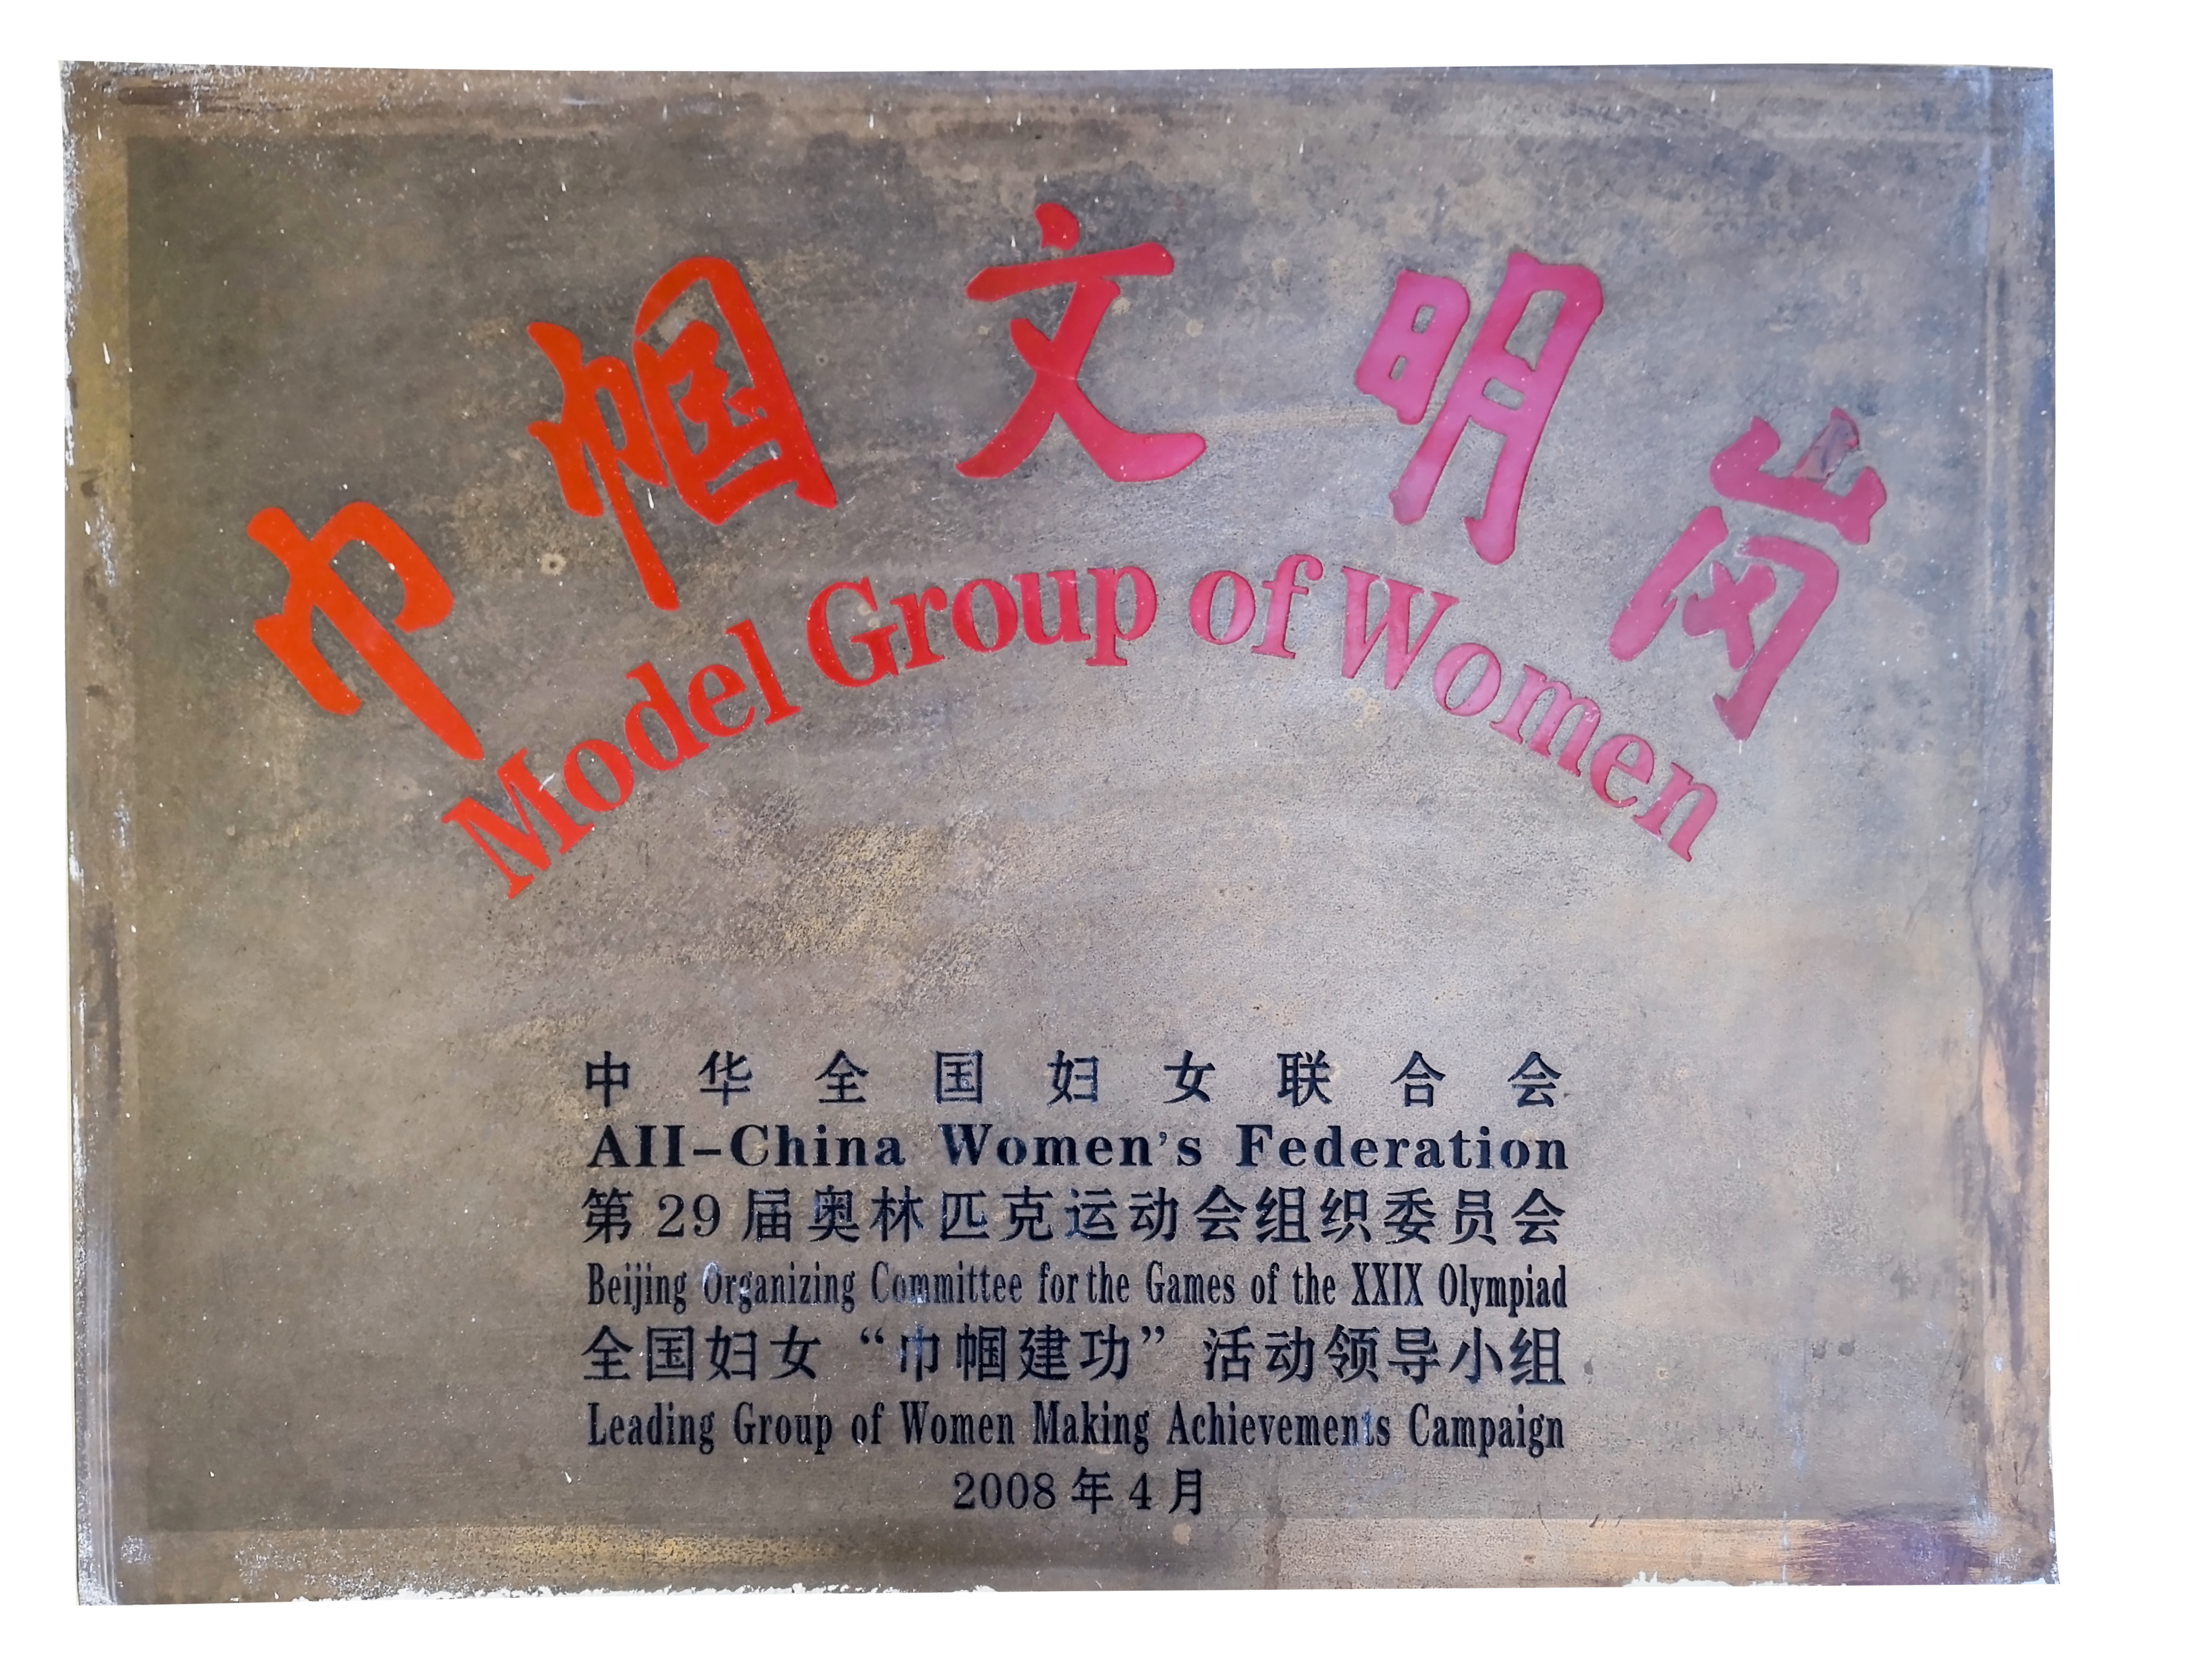 巾帼文明岗
Model Group of Women
中华全国妇女联合会
AII-China Women's Federation
第29届奥林匹克运动会组织委员会
Beijing Organizing Committee for the Games of the XXIX Olympiad
全国妇女“巾帼建功”活动领导小组
Leading Group of Women Making Achievements Campaign
2008年4月